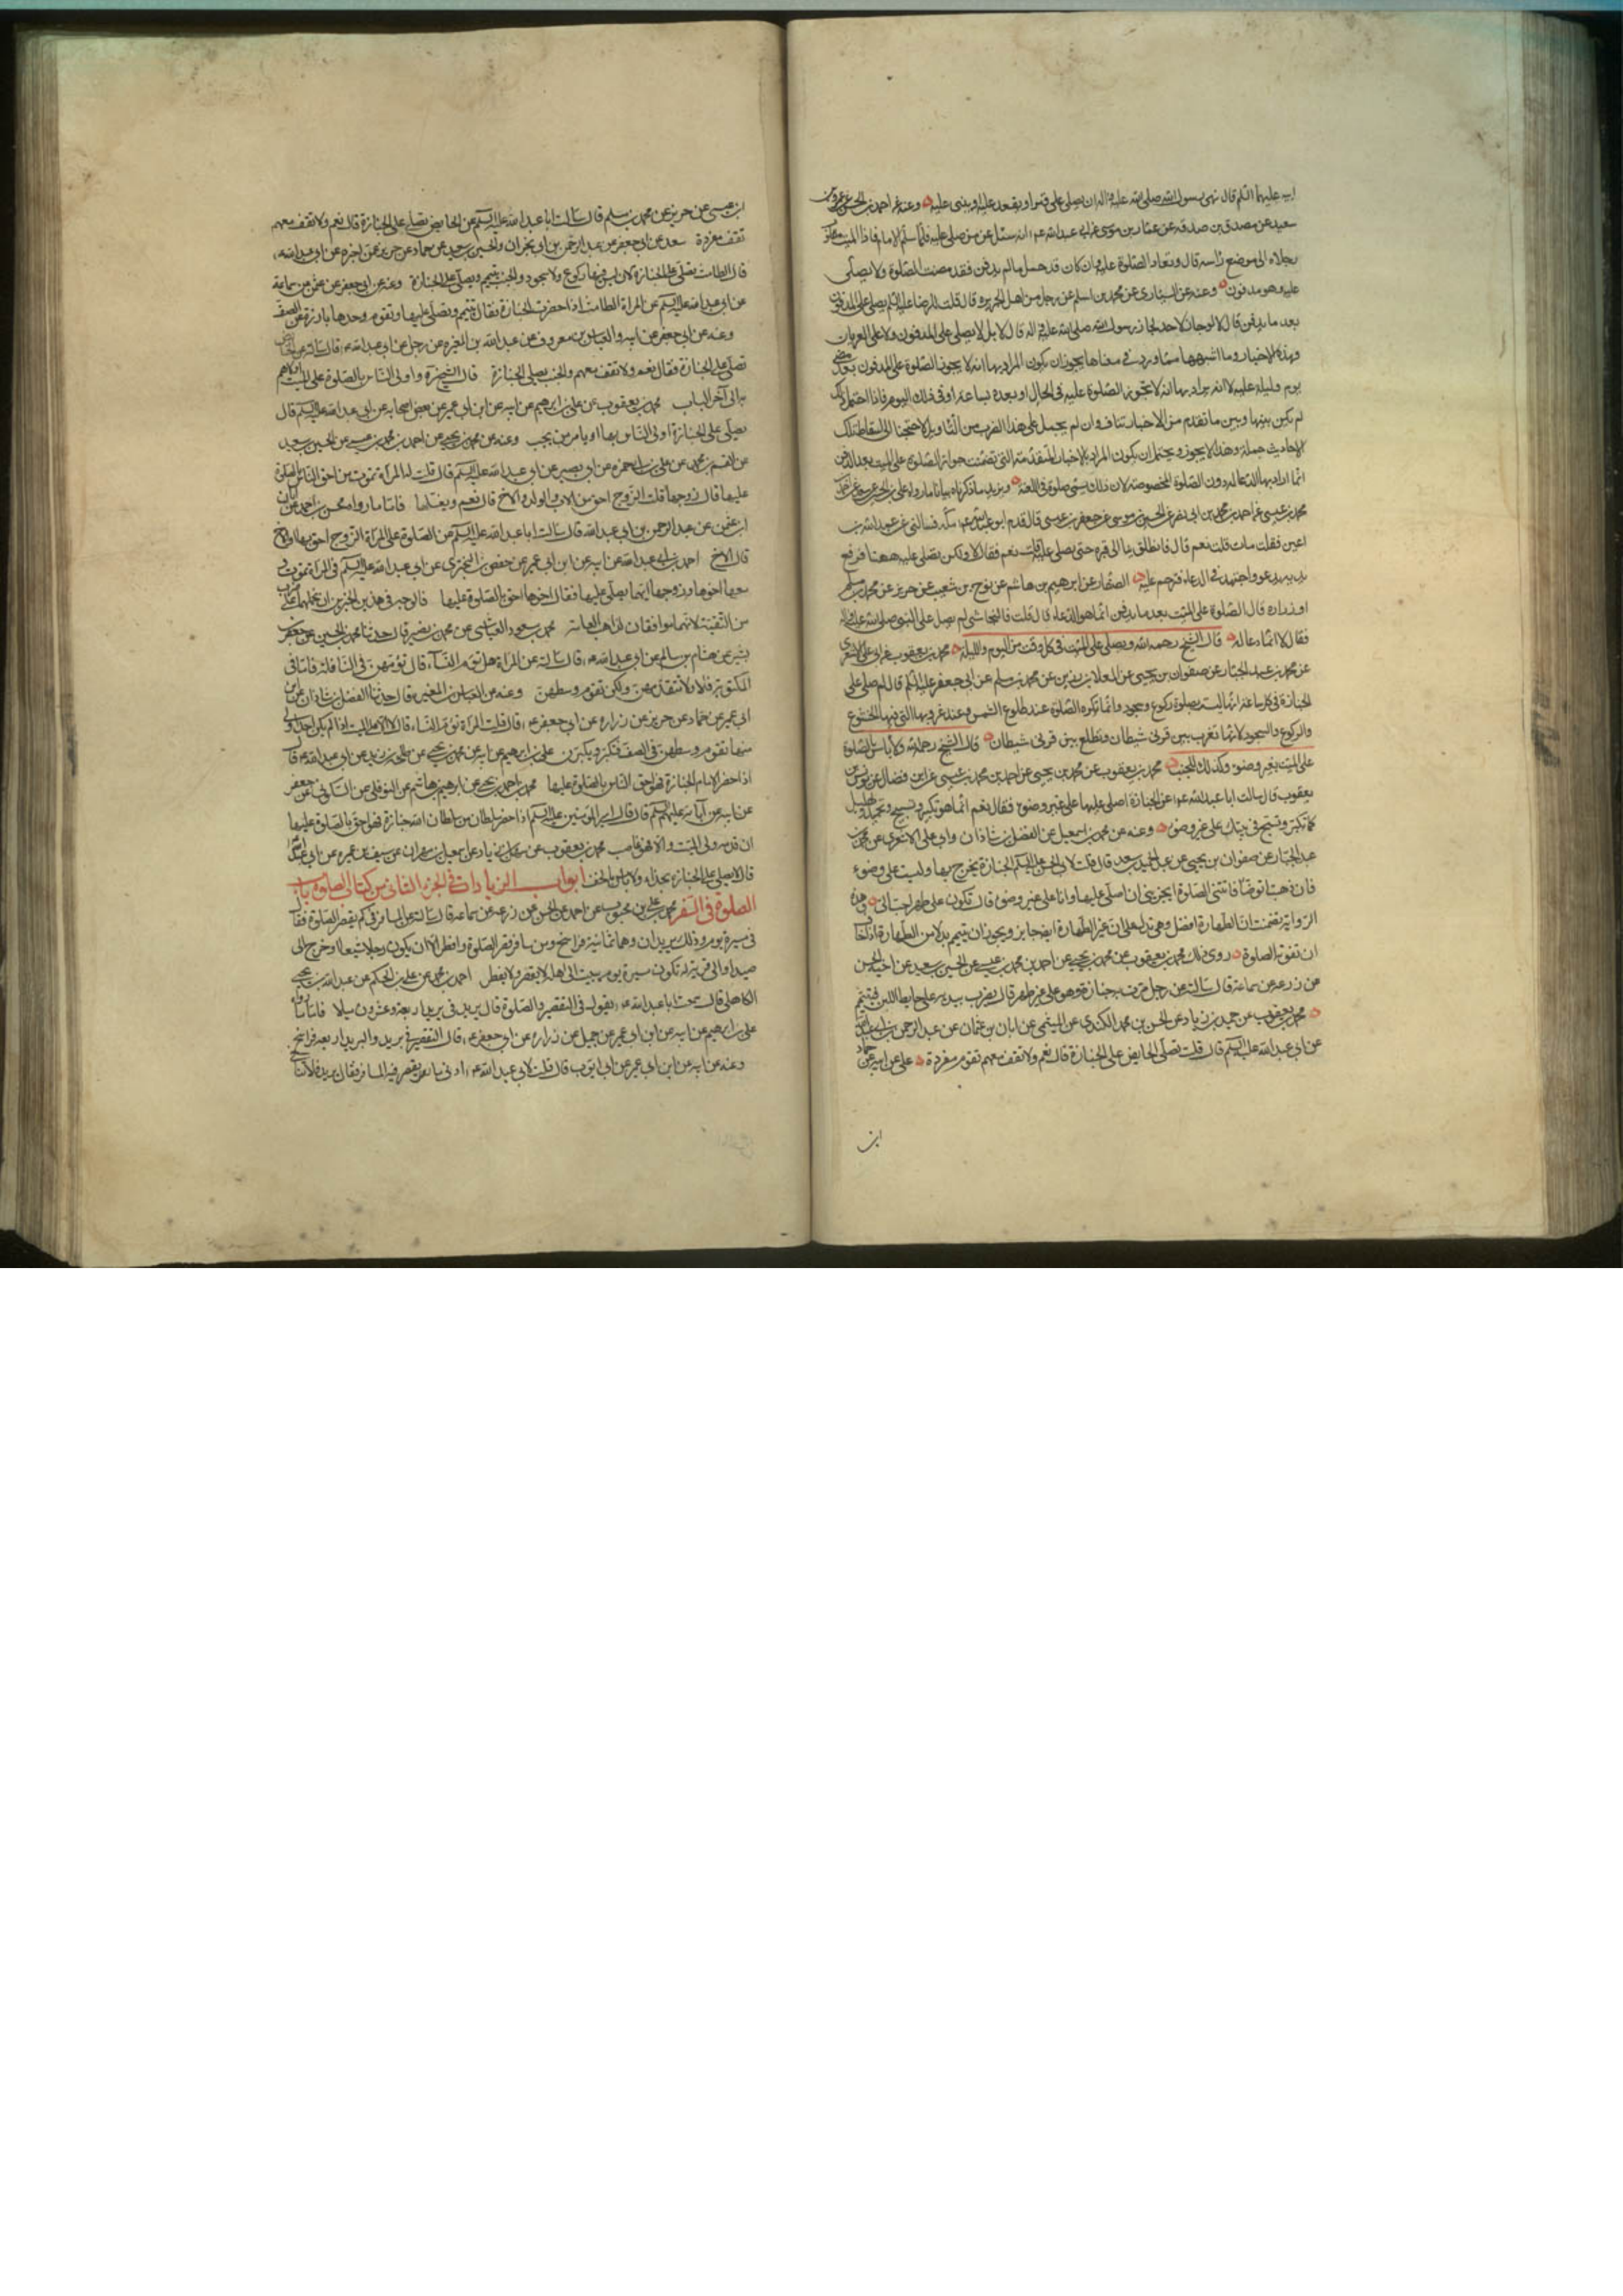 ابيه عليهما السلم قال نهى رسول الله صلى الله عليه واله ان يصلى على قبر او يقعد عليه او يبنى عليه وعنه عن احمد بن الحسن عن عمرو بن
سعيد عن مصدق بن صدقه عن عمار بن موسى عن ابى عبد الله ع انه سئل عن من صلى عليه فلما سلم الامام فاذا الميت مقلوب
رجلاه الى موضع راسه قال يسوى وتعاد الصلوة عليه وان كان قد حمل مالم يدفن فان دفن فقد مضت الصلوة ولا يصلى
عليه وهو مدفون وعنه عن السيارى عن محمد بن اسلم عن رجل من اهل الجزيره قال قلت للرضا عليه السلم يصلى على المدفون
بعد ما يدفن قال لا لو جاز لاحد لجاز لرسول الله صلى الله عليه واله قال لا بل لا يصلى على المدفون ولا على العريان
وهذه الاخبار وما اشبهها مما ورد فى معناها يجوز ان يكون المراد بها انه لا يجوز الصلوة على المدفون بعد مضى
يوم وليلة عليه لا انه يراد بها انه لا يجوز الصلوة عليه فى الحال او بعده بساعة او فى ذلك اليوم فاذا احتمل ذلك
لم يكن بينها وبين ما تقدم من الاخبار تناف وان لم يحمل على هذا الضرب من التاويل لاحتجنا الى اسقاط تلك
الاحاديث جملة وهذا لا يجوز ويحتمل ان يكون المراد بالاخبار المتقدمة التى تضمنت جواز الصلوة على الميت بعد الدفن
انما اراد بها الدعاء له دون الصلوة المخصوصة لان ذلك يسمى صلوة فى اللغة ويزيد ما ذكرناه بيانا ما رواه على بن الحسين عن سعد عن احمد بن
محمد بن عيسى عن احمد بن محمد بن ابى نصر عن الحسين بن موسى عن جعفر بن عيسى قال قدم ابو عبد الله ع مكة فسالنى عن عبد الله بن
اعين فقلت مات قلت نعم قال فانطلق بنا الى قبره حتى يصلى عليه قلت نعم فقال لا ولكن نصلى عليه ههنا فرفع
يديه يدعو واجتهد فى الدعاء وترحم عليه الصفار عن ابرهيم بن هاشم عن نوح بن شعيب عن حريز عن محمد بن مسلم
او زراره قال الصلوة على الميت بعد ما يدفن انما هو الدعاء قال قلت فالنجاشى لم يصل على النبى صلى الله عليه واله
فقال لا انما دعا له قال الشيخ رحمه الله ويصلى على الميت فى كل وقت من اليوم والليلة محمد بن يعقوب عن ابى على الاشعرى
عن محمد بن عبد الجبار عن صفوان بن يحيى عن العلا بن رزين عن محمد بن مسلم عن ابى جعفر عليه السلم قال لم صلى على
الجنازة فى كل ساعة انها ليست بصلوة ركوع وسجود وانما تكره الصلوة عند طلوع الشمس وعند غروبها التى فيها الخشوع
والركوع والسجود لانها تغرب بين قرنى شيطان وتطلع بين قرنى شيطان قال الشيخ رحمه الله ولا باس بالصلوة
على الميت بغير وضوء وكذلك للجنب محمد بن يعقوب عن محمد بن يحيى عن احمد بن محمد بن عيسى عن ابن فضال عن يونس بن
يعقوب قال سالت ابا عبد الله ع عن الجنازة اصلى عليها على غير وضوء فقال نعم انما هو تكبير وتسبيح وتحميد وتهليل
كما تكبر وتسبح فى بيتك على غير وضوء وعنه عن محمد بن اسمعيل عن الفضل بن شاذان وابى على الاشعرى عن محمد بن
عبد الجبار عن صفوان بن يحيى عن عبد الحميد بن سعد قال قلت لابى الحسن عليه السلم الجنازة يخرج بها ولست على وضوء
فان ذهبت اتوضا فاتتنى الصلوة ايجزينى ان اصلى عليها وانا على غير وضوء قال تكون على طهر احب الى وهذه
الرواية تضمنت ان الطهارة افضل وهى تدل على ان غير الطهارة ايضا جايز ويجوز ان يتيمم بدلا من الطهارة اذا خاف
ان تفوته الصلوة روى ذلك محمد بن يعقوب عن محمد بن يحيى عن احمد بن محمد بن عيسى عن الحسين بن سعيد عن اخيه الحسن
عن زرعة عن سماعة قال سالته عن رجل مرت به جنازة وهو على غير طهر قال يضرب بيديه على حايط اللبن فيتيمم
محمد بن يعقوب عن حميد بن زياد عن الحسن بن محمد الكندى عن الميثمى عن ابان بن عثمان عن عبد الرحمن بن ابى عبد الله
عن ابى عبد الله عليه السلم قال قلت تصلى الحايض على الجنازة قال نعم ولا تقف معهم تقوم مفردة على عن ابيه عن حماد
ابن
ابن عيسى عن حريز عن محمد بن مسلم قال سالت ابا عبد الله عليه السلم عن الحايض تصلى على الجنازة قال نعم ولا تقف معهم
تقف مفردة سعد عن ابى جعفر عن عبد الرحمن بن ابى نجران والحسين بن سعيد عن حماد عن حريز عمن اخبره عن ابى عبد الله ع
قال الطامث تصلى على الجنازة لانه ليس فيها ركوع ولا سجود والجنب يتيمم ويصلى على الجنازة وعنه عن ابى جعفر عن عثمن عن سماعة
عن ابى عبد الله عليه السلم عن المراة الطامث اذا حضرت الجنازة فقال تتيمم وتصلى عليها وتقوم وحدها بارزة عن الصف
وعنه عن ابى جعفر عن ابيه والعباس بن معروف عن عبد الله بن المغيره عن رجل عن ابى عبد الله ع قال سالته عن الحايض
تصلى على الجنازة فقال نعم ولا تقف معهم والجنب يصلى على الجنازة قال الشيخ ره واولى الناس بالصلوة على الميت اولاهم
به الى آخر الباب محمد بن يعقوب عن على بن ابرهيم عن ابيه عن ابن ابى عمير عن بعض اصحابه عن ابى عبد الله عليه السلم قال
يصلى على الجنازة اولى الناس بها او يامر من يحب وعنه عن محمد بن يحيى عن احمد بن محمد بن عيسى عن الحسين بن سعيد
عن القسم بن محمد عن على بن ابى حمزه عن ابى بصير عن ابى عبد الله عليه السلم قال قلت له المراة تموت من احق الناس بالصلوة
عليها قال زوجها قلت الزوج احق من الاب والولد والاخ قال نعم ويغسلها فاما ما رواه محسن بن احمد عن ابان
ابن عثمن عن عبد الرحمن بن ابى عبد الله قال سالت ابا عبد الله عليه السلم عن الصلوة على المراة الزوج احق بها او الاخ
قال الاخ احمد بن ابى عبد الله عن ابيه عن ابن ابى عمير عن حفص بن البخترى عن ابى عبد الله عليه السلم فى المراة تموت و
معها اخوها وزوجها ايهما يصلى عليها فقال اخوها احق بالصلوة عليها فالوجه فى هذين الخبرين ان نحملهما على ضرب
من التقية لانهما موافقان لمذاهب العامة محمد بن مسعود العياشى عن محمد بن نصير قال حدثنا محمد بن الحسين عن جعفر بن
بشير عن هشام بن سالم عن ابى عبد الله ع قال سالته عن المراة هل تؤم النساء قال تؤمهن فى النافلة فاما فى
المكتوبة فلا ولا تتقدمهن ولكن تقوم وسطهن وعنه عن العباس بن المغيرة قال حدثنا الفضل بن شاذان عن ابن
ابى عمير عن حماد عن حريز عن زراره عن ابى جعفر ع قال قلت المراة تؤم النساء قال لا الا على الميت اذا لم يكن احد اولى
منها تقوم وسطهن فى الصف فتكبر ويكبرن على بن ابرهيم عن ابيه عن محمد بن يحيى عن طلحة بن زيد عن ابى عبد الله ع قال
اذا حضر الامام الجنازة فهو احق الناس بالصلوة عليها محمد بن احمد بن يحيى عن ابرهيم بن هاشم عن النوفلى عن السكونى عن جعفر
عن ابيه عن آبائه عليهم السلم قال قال امير المؤمنين عليه السلم اذا حضر سلطان من سلطان الله جنازة فهو احق بالصلوة عليها
ان قدمه ولى الميت والا فهو غاصب محمد بن يعقوب عن سهل بن زياد عن اسمعيل بن مهران عن سيف بن عميره عن ابى عبد الله ع
قال لا يصلى على الجنازة بحذاء ولا باس بالخف ابواب الزيادات فى الجزء الثانى من كتاب الصلوة باب
الصلوة فى السفر محمد بن على بن محبوب عن احمد عن الحسن عن زرعه عن سماعة قال سالته عن المسافر فى كم يقصر الصلوة فقال
فى مسيرة يوم وذلك بريدان وهما ثمانية فراسخ ومن سافر قصر الصلوة وافطر الا ان يكون رجلا مشيعا او خرج الى
صيد او الى قرية له تكون مسيرة يوم يبيت الى اهله لا يقصر ولا يفطر احمد بن محمد عن على بن الحكم عن عبد الله بن يحيى
الكاهلى قال سمعت ابا عبد الله ع يقول فى التقصير والصلوة قال بريد فى بريد اربعة وعشرون ميلا فاما ما رواه
على بن ابرهيم عن ابيه عن ابن ابى عمير عن جميل عن زراره عن ابى جعفر ع قال التقصير فى بريد والبريد اربعة فراسخ
وعنه عن ابيه عن ابن ابى عمير عن ابى ايوب قال قلت لابى عبد الله ع ادنى ما يقصر فيه المسافر فقال بريد فلا تنافى